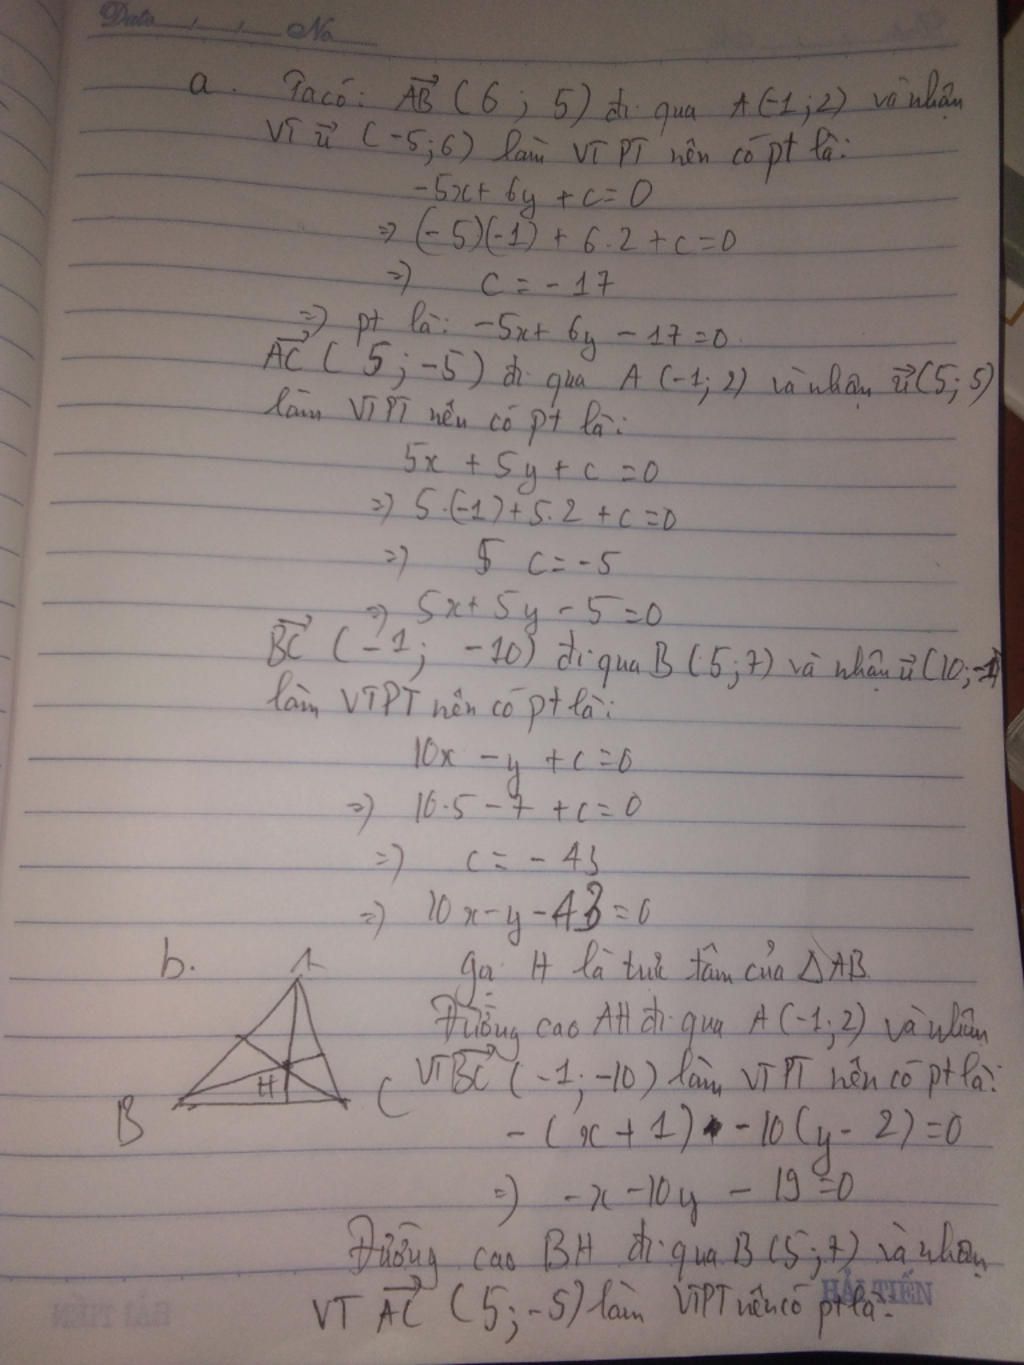 Date / / No
a. Ta có: AB (6 ; 5) đi qua A(-1;2) và nhận
VT u (-5;6) làm VTPT nên có pt là:
-5x + 6y + c = 0
=> (-5)(-1) + 6.2 + c = 0
=> c = -17
=> pt là: -5x + 6y - 17 = 0
AC ( 5 ; -5) đi qua A (-1; 2) và nhận u (5; 5)
làm VTPT nên có pt là:
5x + 5y + c = 0
=> 5.(-1) + 5.2 + c = 0
=> c = -5
=> 5x + 5y - 5 = 0
BC (-1; -10) đi qua B (5;7) và nhận u (10; -1)
làm VTPT nên có pt là:
10x - y + c = 0
=> 10.5 - 7 + c = 0
=> c = -43
=> 10x - y - 43 = 0
b. A Gọi H là trực tâm của ΔAB
Đường cao AH đi qua A (-1;2) và nhận
B H C VT BC (-1; -10) làm VTPT nên có pt là:
- (x + 1) - 10(y - 2) = 0
=> -x - 10y - 19 = 0
Đường cao BH đi qua B (5;7) và nhận
HẢI TIẾN
VT AC (5; -5) làm VTPT nên có pt là: